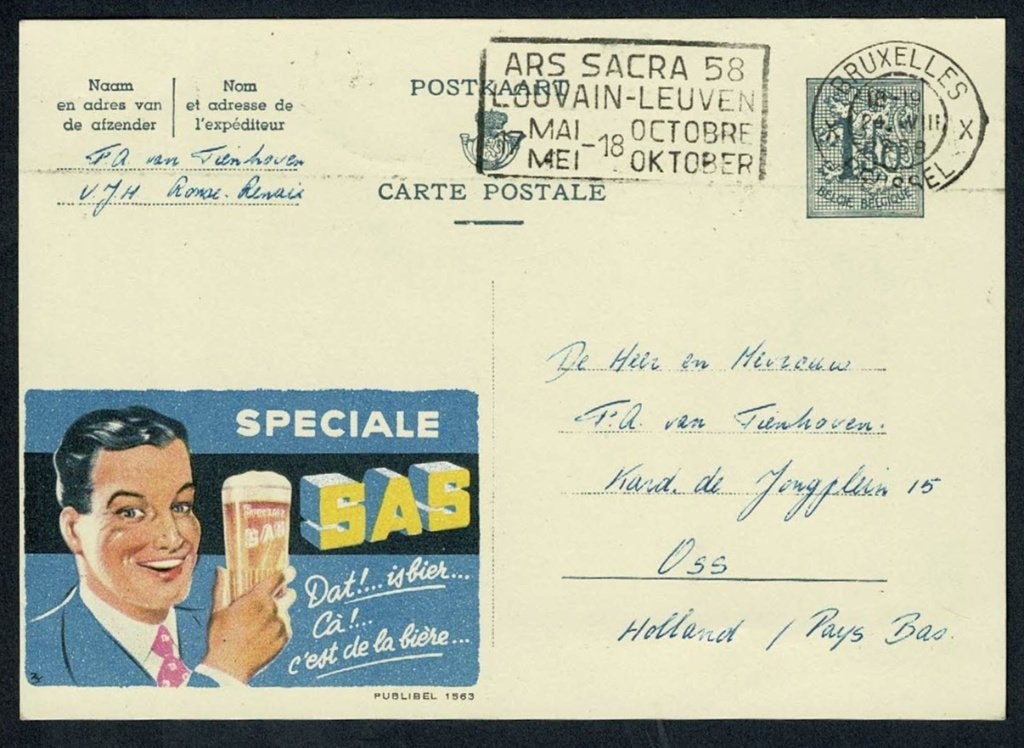 Naam
en adres van
de afzender
Nom
et adresse de
l'expéditeur
F.A. van Tienhoven
v.J.H Ronse-Renaix
POSTKAART
CARTE POSTALE
ARS SACRA 58
LOUVAIN-LEUVEN
MAI - 18 OCTOBRE
MEI OKTOBER
BRUXELLES
18-19
X
BRUSSEL
BELGIE BELGIQUE
De Heer en Mevrouw
F.A. van Tienhoven.
Kard. de Jongplein 15
Oss
Holland / Pays Bas.
SPECIALE
SAS
Speciale
SAS
Dat!... is bier...
Cà!...
c'est de la bière...
PUBLIBEL 1563